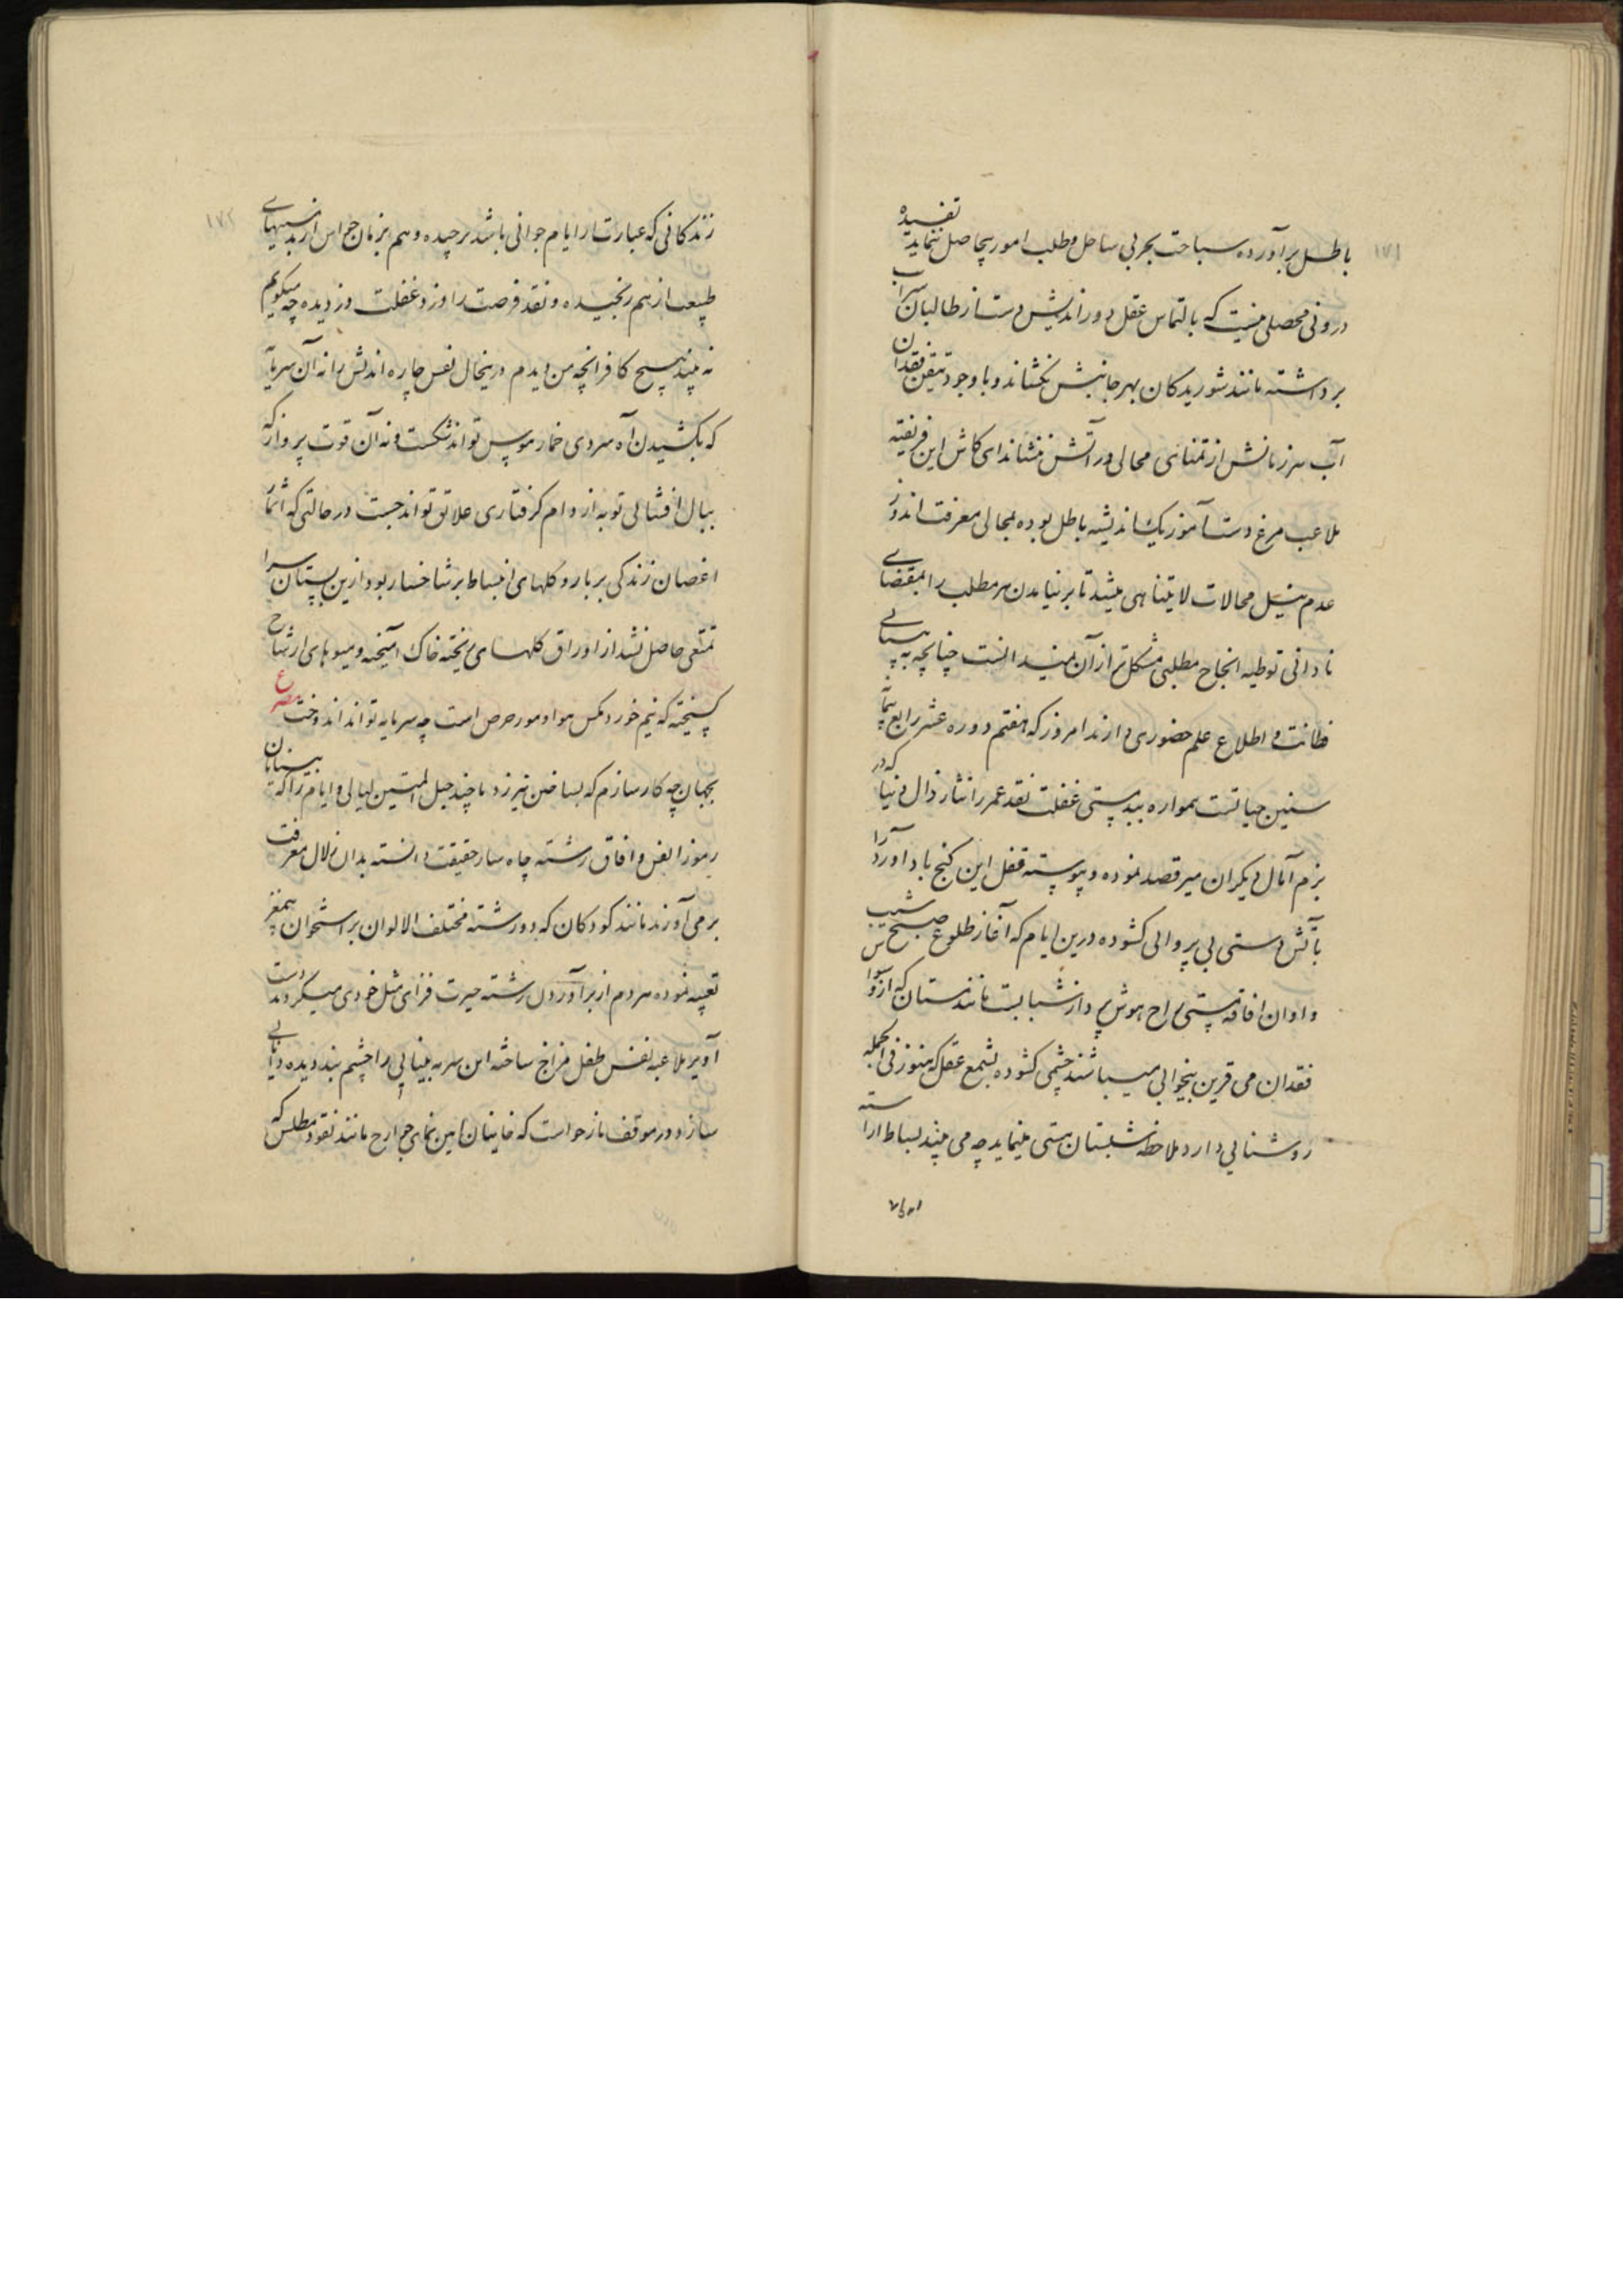 ۱۷۱
باطل برآورده سباحت بحر بی ساحل و طلب امور بیحاصل ننماید تفسیده
درونی محصلی نیست که بالتماس عقل دور اندیش دست از طالبان آب
برداشته مانند شوریدکان بهر جانبش نکشاند و با وجود تیقن فقدان
آب هرزمانش از تمنای محالی در آتش ننشاند ای کاش این فریفته
ملاعب مرغ دست آموز یک اندیشه باطل بوده لمحالی معرفت اندوز
عدم نیل محالات لا یتناهی میشد تا بر نیامدن هر مطلب را بمقتضای
نادانی توطیه انجاح مطلبی مشکل تر از آن نمیدانست چنانچه به
فطانت و اطلاع علم حضوری دارند امروز که هفتم دوره عشر رابع
سنین حیاتست همواره ببدمستی غفلت نقد عمر را نثار زال دنیا که در
بزم آمال دیکران میرقصد نموده و پیوسته قفل این کنج باد آورد را
بآتش دستی بی پروائی کشوده درین ایام که آغاز طلوع صبح شیب
و اوان افاقه مستی راح هوش پرداز شبابست مانند مستان که از
فقدان می قرین بیخوابی میباشند چشمی کشوده بشمع عقل که هنوز فی الجمله
روشنایی دارد ملاحظه شبستان هستی مینماید چه می بیند بساط آراسته
۱۷۲
زندکانی که عبارت از ایام جوانی باشد برچیده و هم بزمان حواس از بد نسبیهای
طبیعت از هم رنجیده و نقد فرصت را دزد غفلت دزدیده چه میکویم
نه بیند هیچ کافر آنچه من دیدم درینحال نفس چاره اندیش را نه آن سرمایه
که بکشیدن آه سردی خمار هوس تواند شکست و نه آن قوت پرواز که
ببال افشانی توبه از دام کرفتاری علایق تواند جست در حالتی که اثمار
اغصان زندکی بر بار و کلهای انبساط بر شاخسار بود ازین بستان سرا
تمتعی حاصل نشد از اوراق کلهای ریخته خاک آمیخته و میوهای از شاخ
کسیخته که نیم خورد مکس هوا و مور حرص است چه سرمایه تواند اندوخت مصرع
بجهان چه کار سازم که بساختن نیرزد تا چند حبل المتین لیالی و ایام را که
رموز انفس و آفاق رشته چاه سار حقیقت دانسته بدان زلال معرفت
برمی آورند مانند کودکان که دو رشته مختلف الالوان بر استخوان بیمغز
تعبیه نموده مردم از برآوردن رشته حیرت فزای مثل خودی میکردند دست
آویز ملاعبه نفس طفل مزاج ساخته این سرمه بینایی را چشم بند دیده دانایی
سازد و در موقف بازخواست که خاینان امین نمای جوارح مانند نقود مطلس که